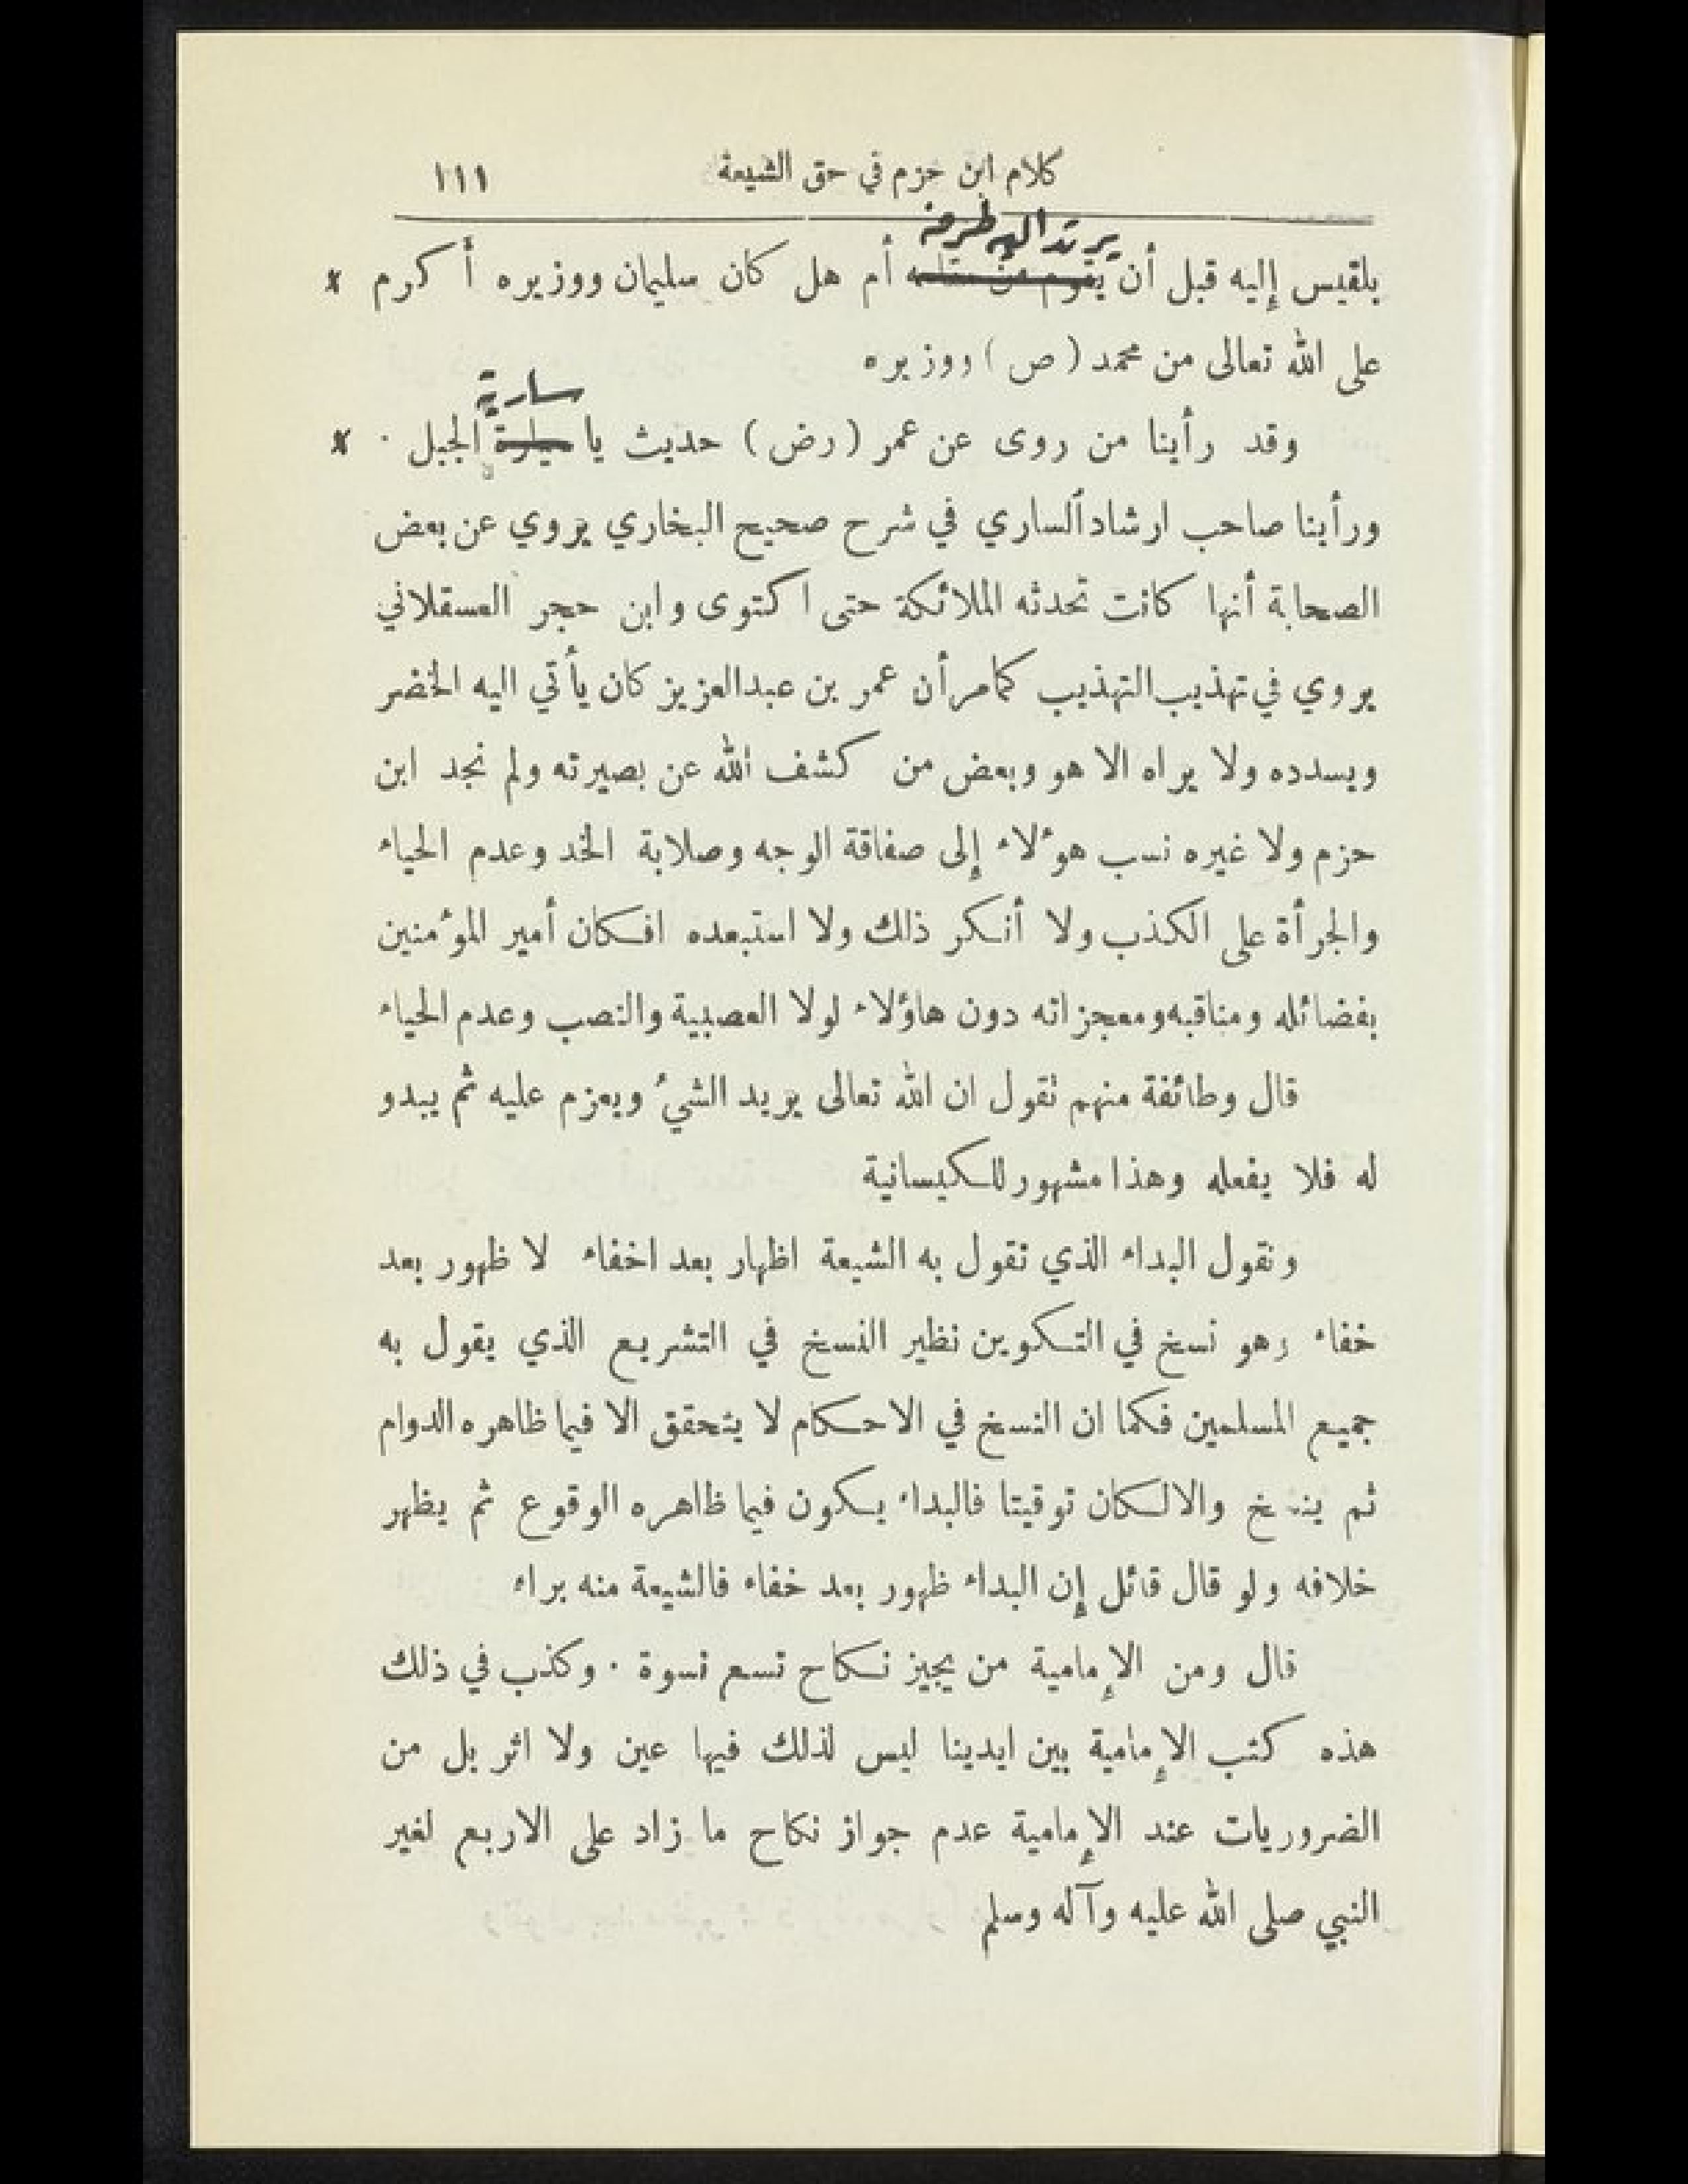 كلام ابن حزم في حق الشيعة ١١١
يرتد اليه طرفه
بلقيس إليه قبل أن يقوم من مقامه أم هل كان سليمان ووزيره أكرم x
على الله تعالى من محمد (ص) ووزيره
سارية
وقد رأينا من روى عن عمر (رض) حديث يا سيارة الجبل . x
ورأينا صاحب ارشاد الساري في شرح صحيح البخاري يروي عن بعض
الصحابة أنها كانت تحدثه الملائكة حتى اكتوى وابن حجر العسقلاني
يروي في تهذيب التهذيب كمامر أن عمر بن عبدالعزيز كان يأتي اليه الخضر
ويسدده ولا يراه الا هو وبعض من كشف الله عن بصيرته ولم نجد ابن
حزم ولا غيره نسب هؤلاء إلى صفاقة الوجه وصلابة الخد وعدم الحياء
والجرأة على الكذب ولا أنكر ذلك ولا استبعده افكان أمير المؤمنين
بفضائله ومناقبه ومعجزاته دون هاؤلاء لولا العصبية والنصب وعدم الحياء
قال وطائفة منهم تقول ان الله تعالى يريد الشيُ ويعزم عليه ثم يبدو
له فلا يفعله وهذا مشهور للكيسانية
ونقول البداء الذي تقول به الشيعة اظهار بعد اخفاء لا ظهور بعد
خفاء وهو نسخ في التكوين نظير النسخ في التشريع الذي يقول به
جميع المسلمين فكما ان النسخ في الاحكام لا يتحقق الا فيما ظاهره الدوام
ثم ينسخ والالكان توقيتا فالبداء يكون فيما ظاهره الوقوع ثم يظهر
خلافه ولو قال قائل إن البداء ظهور بعد خفاء فالشيعة منه براء
قال ومن الإمامية من يجيز نكاح تسع نسوة . وكذب في ذلك
هذه كتب الإمامية بين ايدينا ليس لذلك فيها عين ولا اثر بل من
الضروريات عند الإمامية عدم جواز نكاح ما زاد على الاربع لغير
النبي صلى الله عليه وآله وسلم